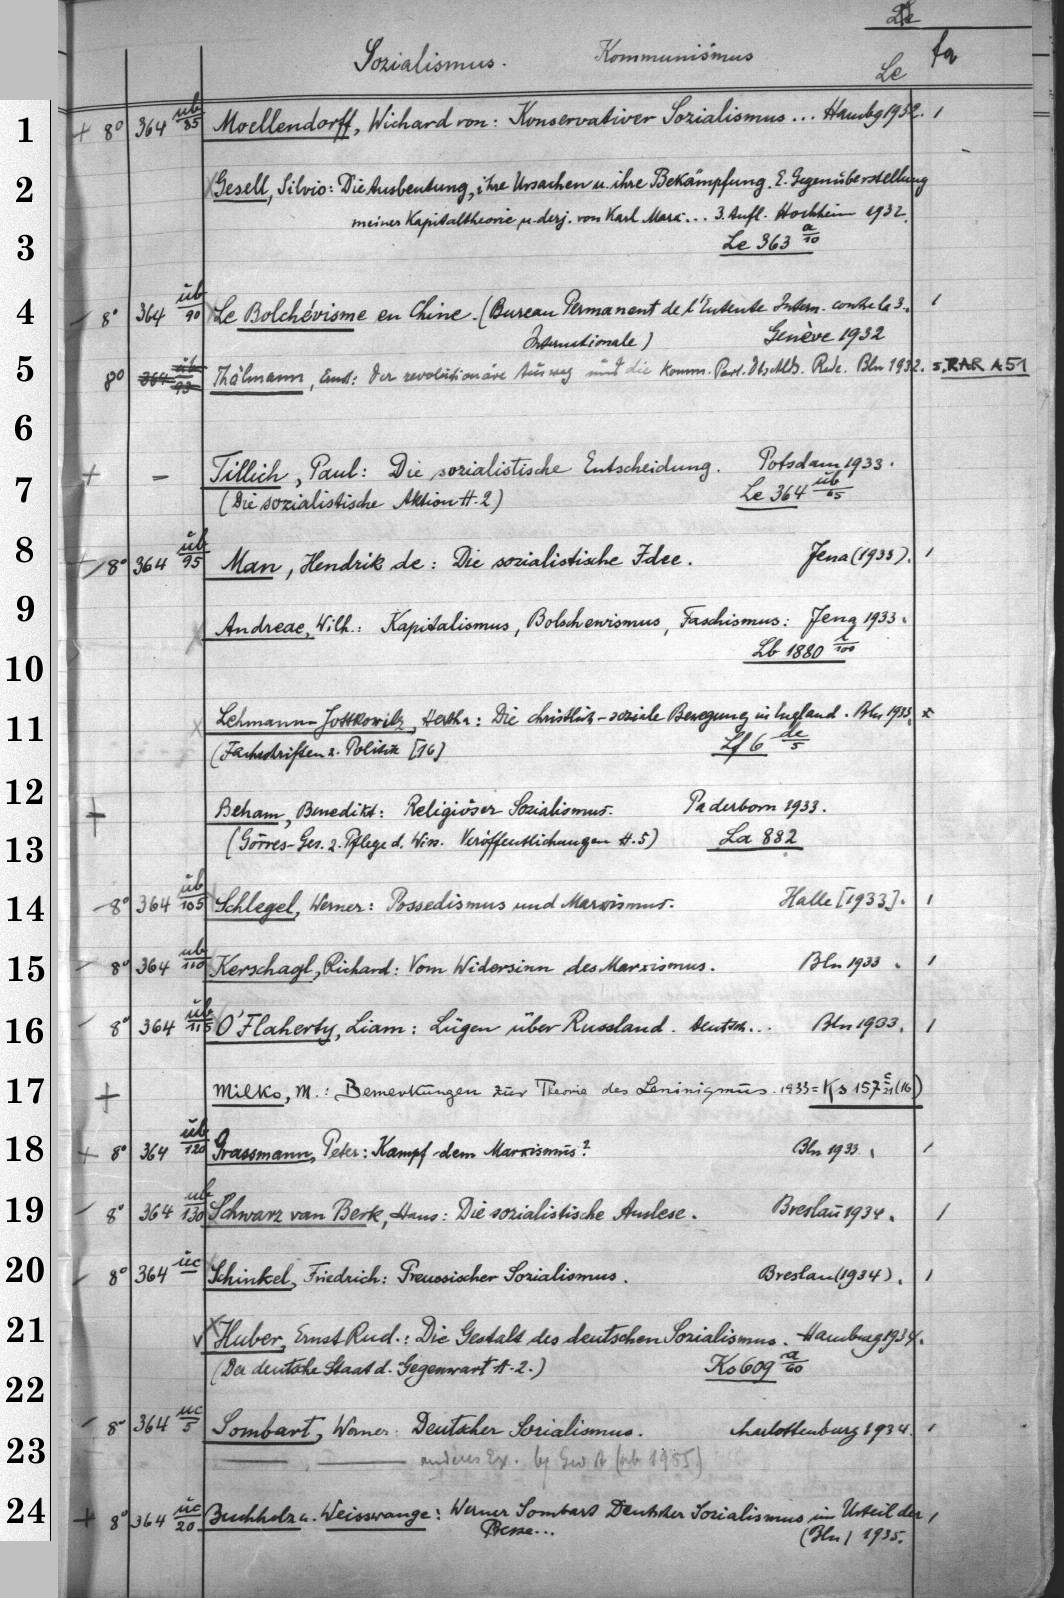 Le
Sozialismus. Kommunismus
Le fa
1 + 8° 364 üb/85 Moellendorff, Wichard von: Konservativer Sozialismus ... Hambg 1932. 1
2 Gesell, Silvio: Die Ausbeutung, ihre Ursachen u. ihre Bekämpfung. E. Gegenüberstellung
meiner Kapitaltheorie u. derj. von Karl Marx... 3. Aufl. Hochheim 1932.
3 Le 363 a/10
4 8° 364 üb/90 Le Bolchévisme en Chine. (Bureau Permanent de l'Entente Intern. contre la 3.. 1
Internationale) Genève 1932
5 8° 364 üb/93 Thälmann, Ernst: Der revolutionäre Ausweg und die Komm. Part. Dtschlds. Rede. Bln 1932. s. RAR A 51
6
+ - Tillich, Paul: Die sozialistische Entscheidung. Potsdam 1933.
7 (Die sozialistische Aktion H. 2) Le 364 üb/65
8 8° 364 üb/95 Man, Hendrik de: Die sozialistische Idee. Jena (1933). 1
9 Andreae, Wilh.: Kapitalismus, Bolschewismus, Faschismus: Jena 1933.
10 Lb 1880 /100
11 Lehmann-Jottkowitz, Hertha: Die christlich-soziale Bewegung in England. Bln 1933. x
(Fachschriften z. Politik [16] Lf 6 de/5
12 + Beham, Benedikt: Religiöser Sozialismus. Paderborn 1933.
13 (Görres-Ges. z. Pflege d. Wiss. Veröffentlichungen H. 5) La 882
14 8° 364 üb/105 Schlegel, Werner: Possedismus und Marxismus. Halle [1933]. 1
15 8° 364 üb/110 Kerschagl, Richard: Vom Widersinn des Marxismus. Bln 1933. 1
16 8° 364 üb/115 O'Flaherty, Liam: Lügen über Russland. Deutsch... Bln 1933. 1
17 + Milko, M.: Bemerkungen zur Theorie des Leninismus. 1933 = Ks 157 c/21 (16.)
18 + 8° 364 üb/120 Grassmann, Peter: Kampf dem Marxismus? Bln 1933. 1
19 8° 364 üb/130 Schwarz van Berk, Hans: Die sozialistische Auslese. Breslau 1934. 1
20 8° 364 üc Schinkel, Friedrich: Preussischer Sozialismus. Breslau (1934). 1
21 Huber, Ernst Rud.: Die Gestalt des deutschen Sozialismus. Hamburg 1934.
(Der deutsche Staat d. Gegenwart H. 2.) Ks 609 a/60
22
8° 364 üc/5 Sombart, Werner: Deutscher Sozialismus. Charlottenburg 1934. 1
23 anderes Ex.
24 + 8° 364 üc/20 Buchholz u. Weisswange: Werner Sombart Deutscher Sozialismus im Urteil der 1
Presse... (Bln) 1935.